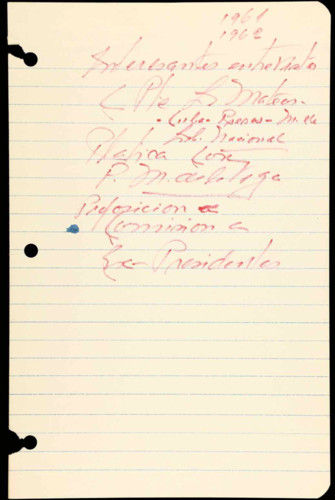 1961
1962
Interesantes entrevistas
c Pte L. Mateos-
- Cuba - Presos - M. de
Lib. Nacional
Platica con
P. M. de la Vega
Proposicion a
Comision a
Ex-Presidentes